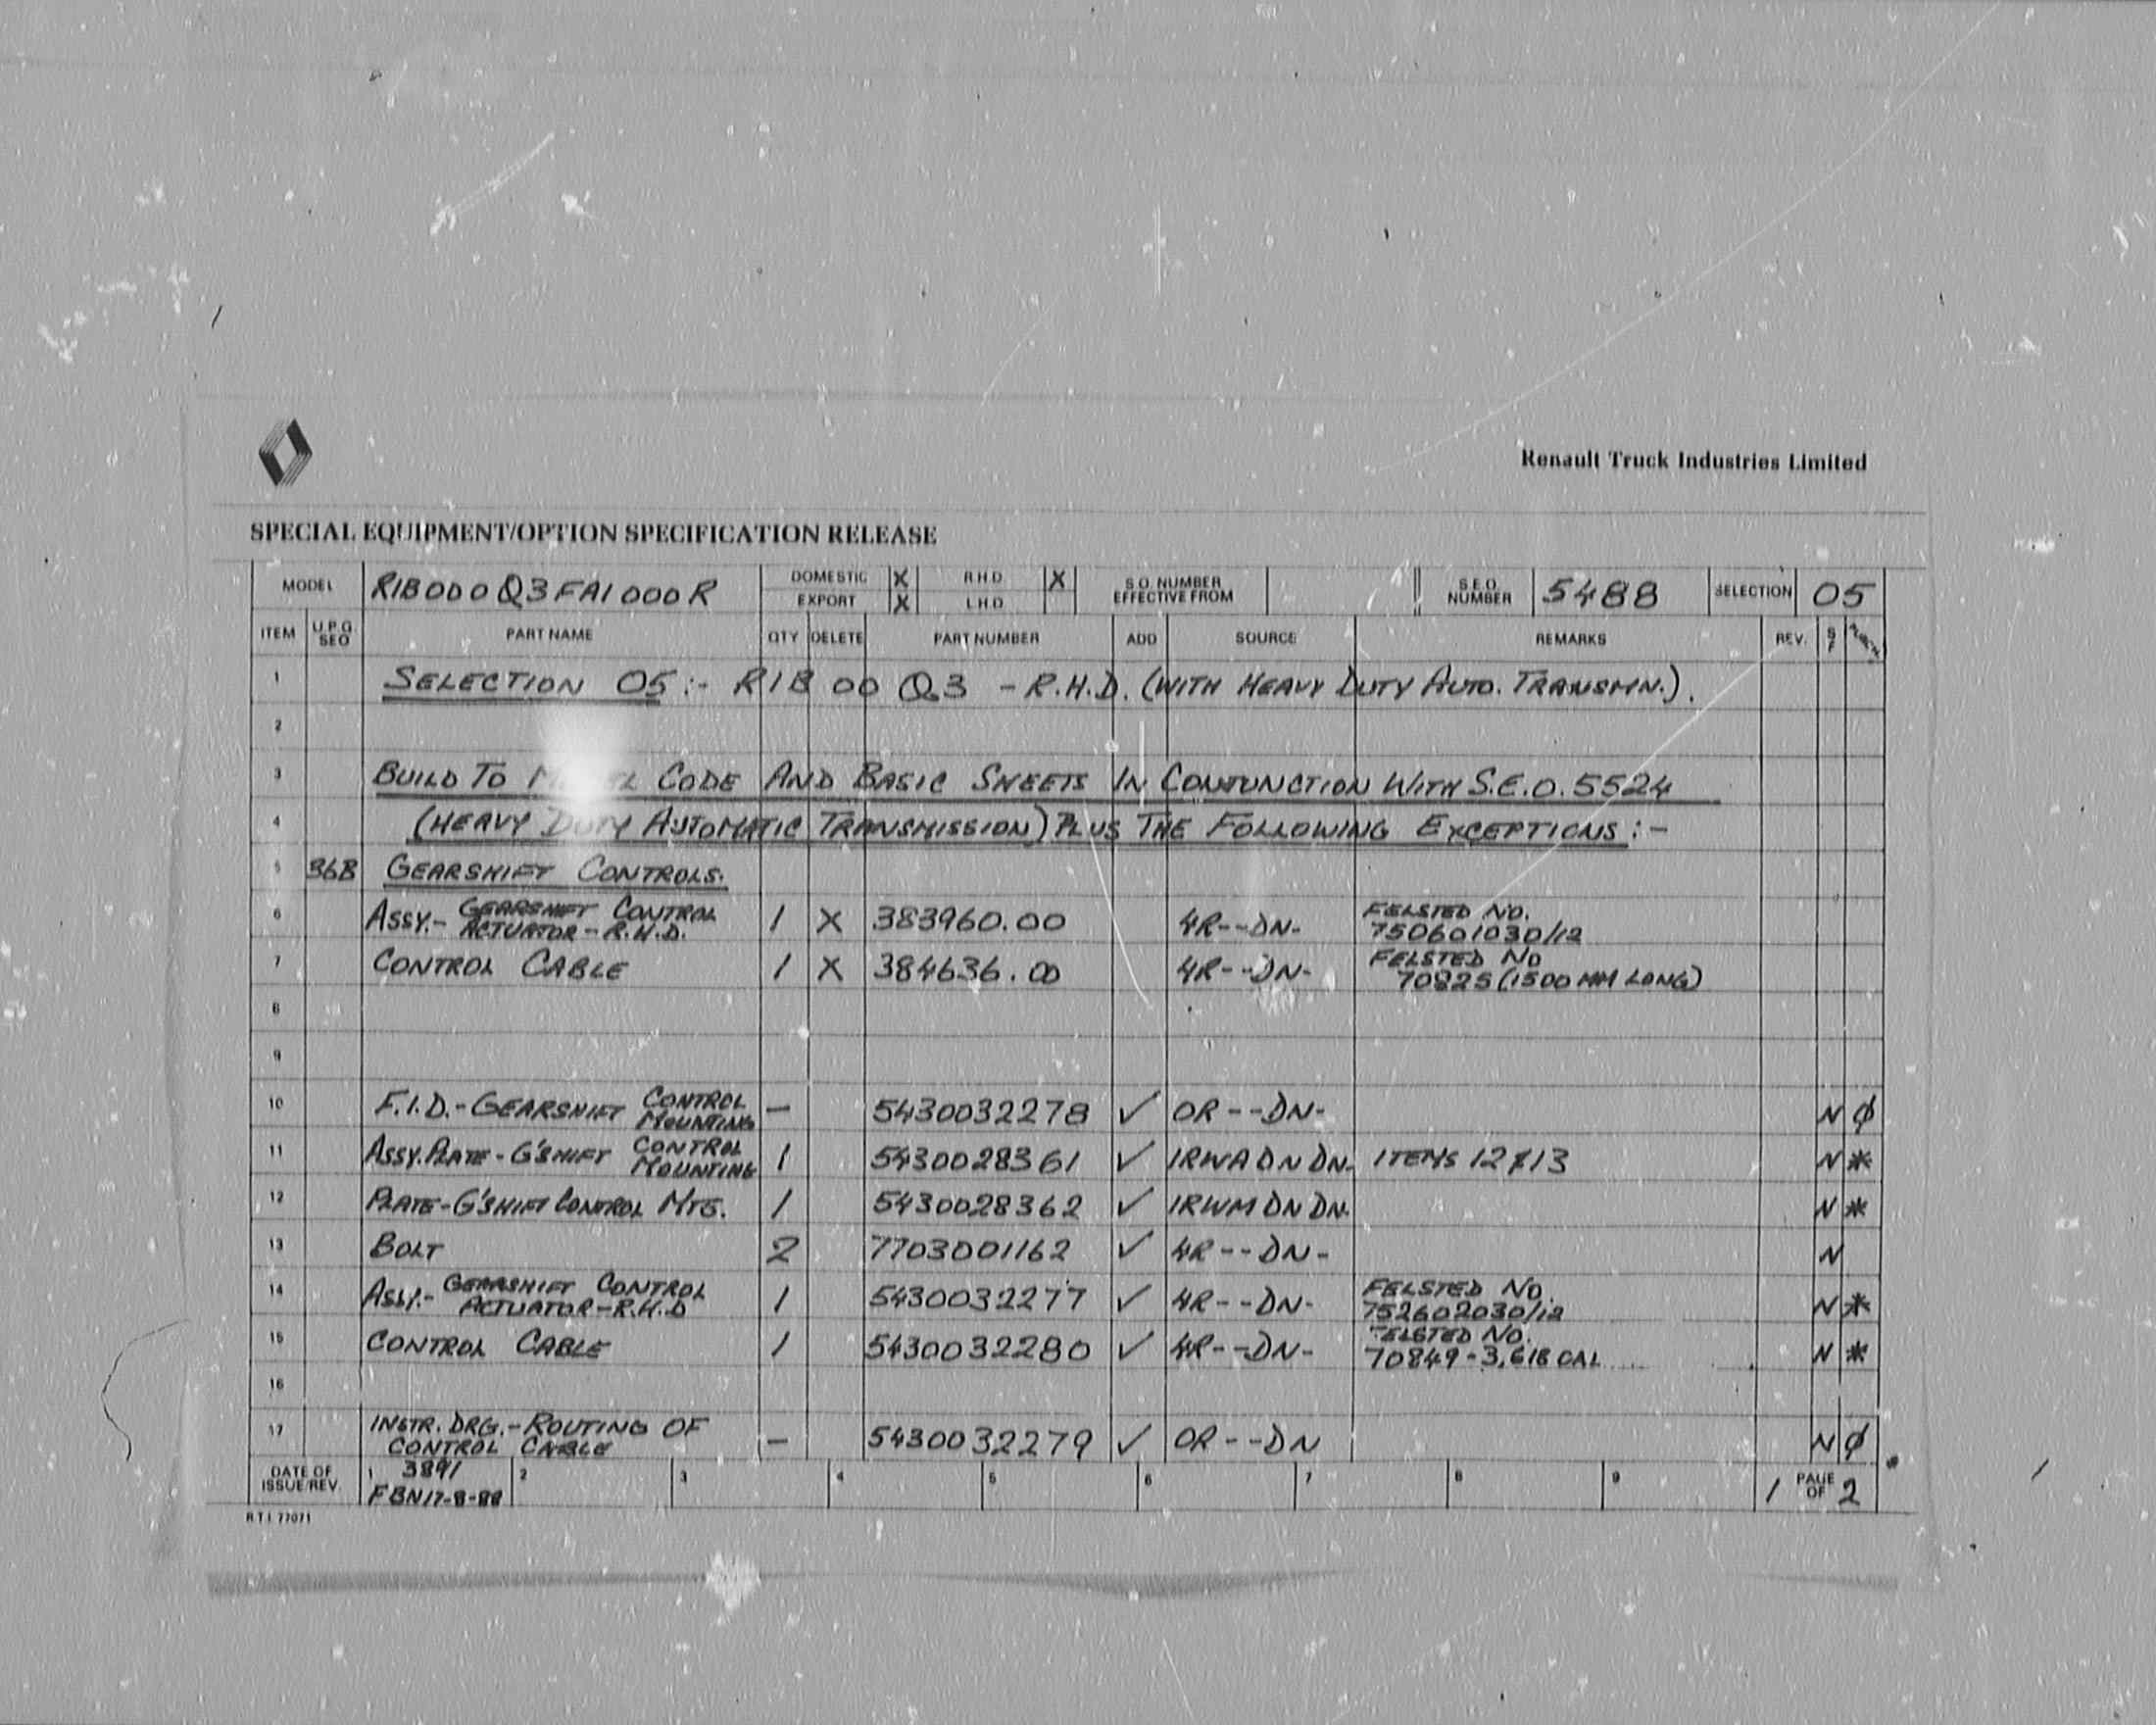 Renault Truck Industries Limited
SPECIAL EQUIPMENT/OPTION SPECIFICATION RELEASE
MODEL R1B000Q3FA1000R DOMESTIC X R.H.D. X S.O. NUMBER EFFECTIVE FROM S.E.O. NUMBER 5488 SELECTION 05
EXPORT X L.H.D.
ITEM U.P.G. SEQ PART NAME QTY DELETE PART NUMBER ADD SOURCE REMARKS REV.
1 SELECTION 05:- R1B 00 Q3 - R.H.D. (WITH HEAVY DUTY AUTO. TRANSMN.).
2
3 BUILD TO CODE AND BASIC SHEETS IN CONJUNCTION WITH S.E.O. 5524
4 (HEAVY DUTY AUTOMATIC TRANSMISSION) PLUS THE FOLLOWING EXCEPTIONS:-
5 36B GEARSHIFT CONTROLS.
6 ASSY.- GEARSHIFT CONTROL ACTUATOR - R.H.D. 1 X 383960.00 4R--DN- FELSTED NO. 750601030/12
7 CONTROL CABLE 1 X 384636.00 4R--DN- FELSTED NO 70825 (1500 MM LONG)
8
9
10 F.I.D.- GEARSHIFT CONTROL MOUNTING - 5430032278 ✓ OR--DN- N ϕ
11 ASSY. PLATE - G'SHIFT CONTROL MOUNTING 1 5430028361 ✓ 1RWADNDN- ITEMS 12 & 13 N *
12 PLATE - G'SHIFT CONTROL MTG. 1 5430028362 ✓ 1RWMDNDN- N *
13 BOLT 2 7703001162 ✓ 4R--DN- N
14 ASSY.- GEARSHIFT CONTROL ACTUATOR - R.H.D 1 5430032277 ✓ 4R--DN- FELSTED NO. 752602030/12 N *
15 CONTROL CABLE 1 5430032280 ✓ 4R--DN- FELSTED NO. 70849-3,618 OAL N *
16
17 INSTR. DRG.- ROUTING OF CONTROL CABLE - 5430032279 ✓ OR--DN N ϕ
DATE OF ISSUE/REV. 1 3891 FBN 17-8-88 2 3 4 5 6 7 8 9 1 PAGE OF 2
R.T.I. 77071